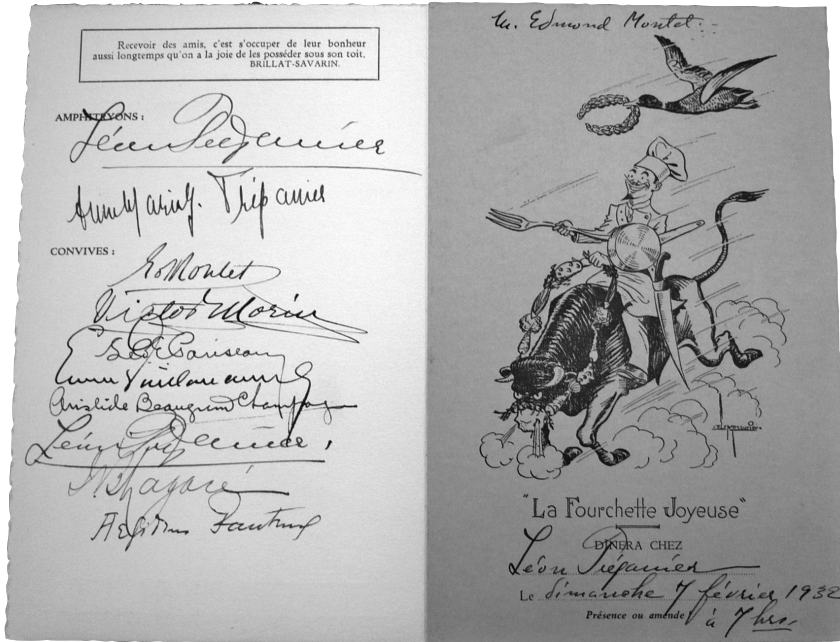 Recevoir des amis, c'est s'occuper de leur bonheur
aussi longtemps qu'on a la joie de les posséder sous son toit.
BRILLAT-SAVARIN.
AMPHITRYONS :
Léon Trépanier
Anne Marie Trépanier
CONVIVES :
Ed Montet
Victor Morin
Aristide Beaugrand Champagne
Léon Trépanier
Aegidius Fauteux
M. Edmond Montet
"La Fourchette Joyeuse"
DÎNERA CHEZ
Léon Trépanier
Le dimanche 7 février 1932
Présence ou amende! à 7 hrs.